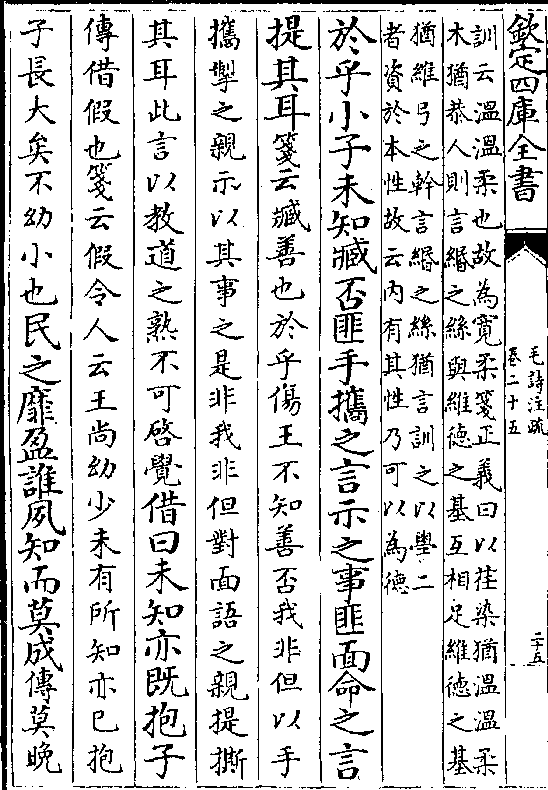 欽定四庫全書
毛詩注疏
卷二十五
二十五
訓云溫溫柔也故為寬柔箋正義曰以荏染猶溫溫柔
木猶恭人則言緡之絲與維德之基互相足維德之基
猶維弓之幹言緡之絲猶言訓之以學二
者資於本性故云内有其性乃可以為德
於乎小子未知臧否匪手攜之言示之事匪面命之言
提其耳箋云臧善也於乎傷王不知善否我非但以手
攜掣之親示以其事之是非我非但對面語之親提撕
其耳此言以教道之熟不可啓覺借曰未知亦既抱子
傳借假也箋云假令人云王尚幼少未有所知亦已抱
子長大矣不幼小也民之靡盈誰夙知而莫成傳莫晚